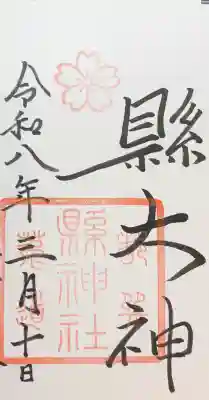 縣大神
縣神社
令和八年三月十日